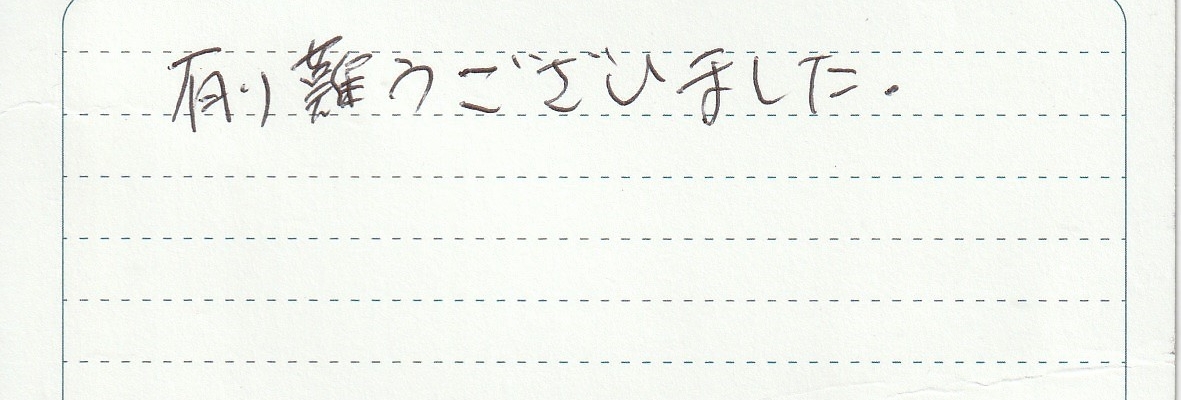 有り難うございました.